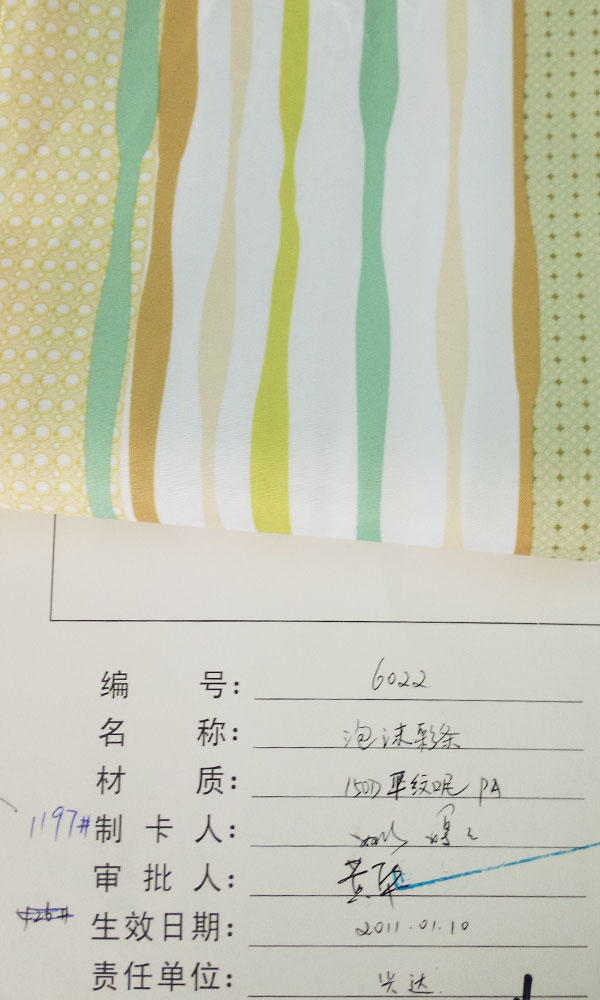 编 号: 6022
名 称: 泡沫彩条
材 质: 150D 单纹呢 PA
1197# 制 卡 人:
审 批 人:
生效日期: 2011.01.10
责任单位: 兴达